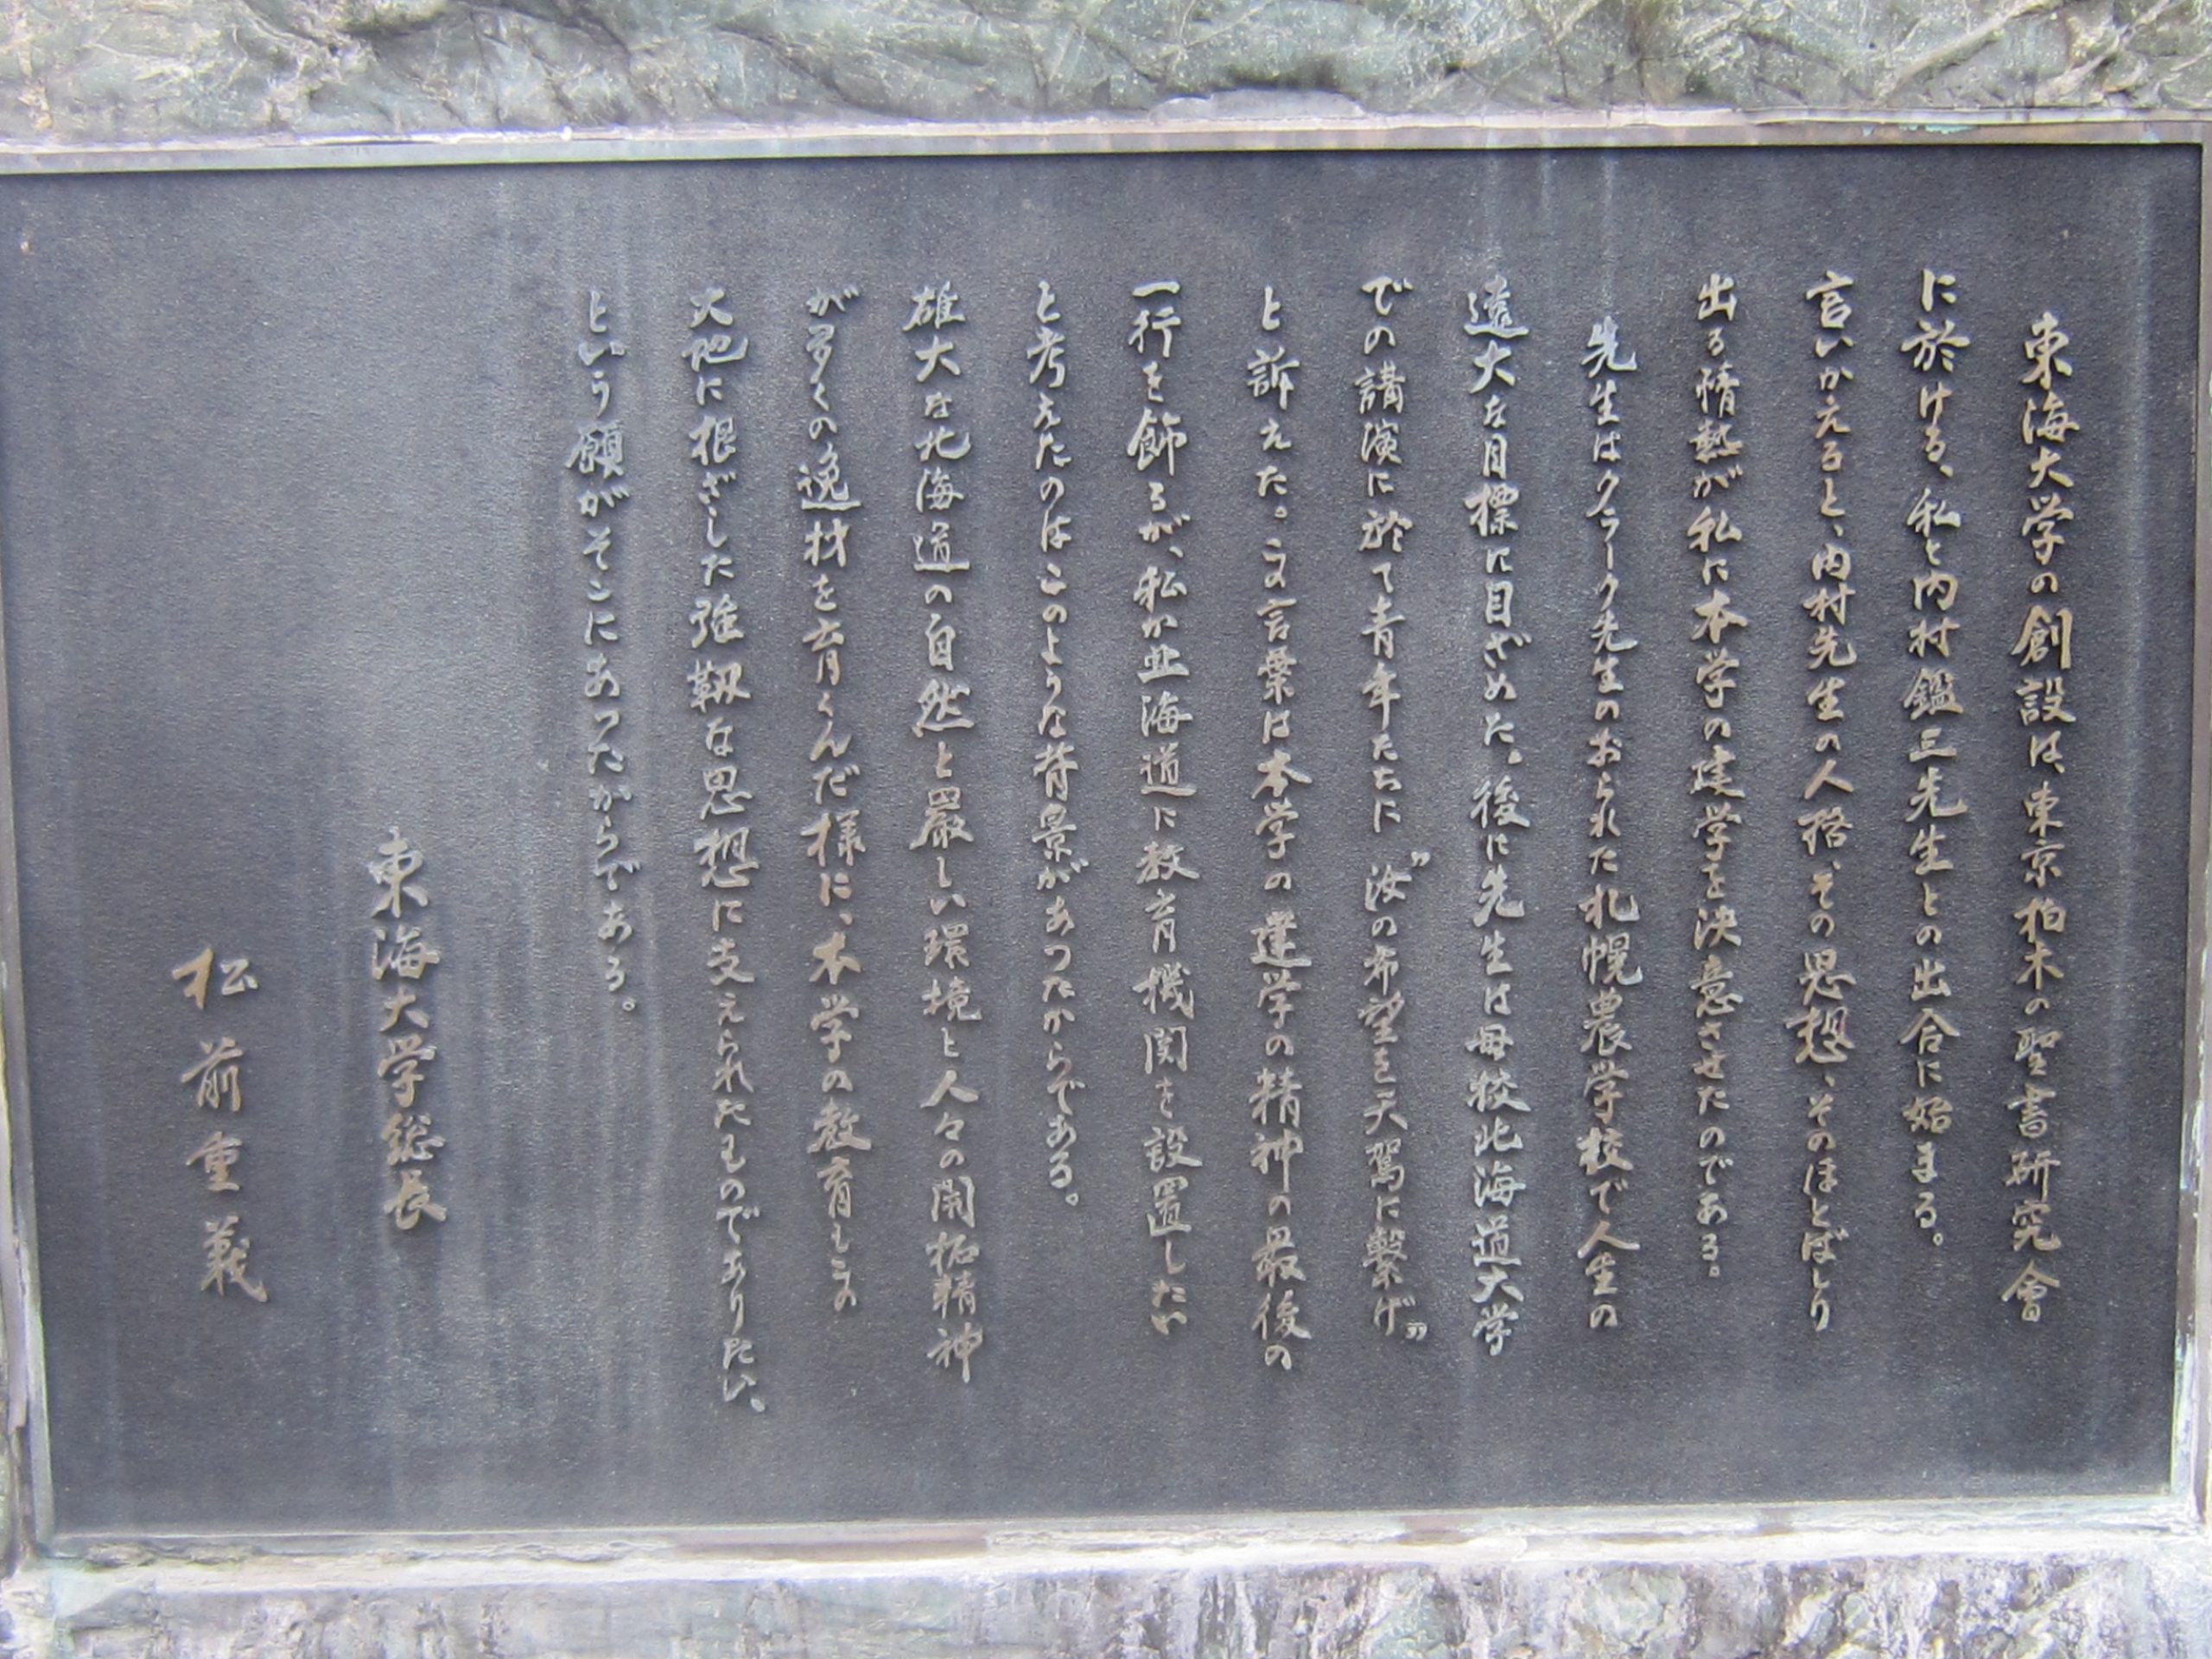 東海大学の創設は、東京柏木の聖書研究會
に於ける、私と内村鑑三先生との出合に始まる。
言いかえると、内村先生の人格、その思想、そのほとばしり
出る情熱が私に本学の建学を決意させたのである。
先生はクラーク先生のおられた札幌農学校で人生の
遠大な目標に目ざめた。後に先生は母校北海道大学
での講演に於て青年たちに〝汝の希望を天駕に繋げ〟
と訴えた。この言葉は本学の建学の精神の最後の
一行を飾るが、私が北海道に教育機関を設置したい
と考えたのはこのような背景があつたからである。
雄大な北海道の自然と厳しい環境と人々の開拓精神
が多くの逸材を育くんだ様に、本学の教育もこの
大地に根ざした強靱な思想に支えられたものでありたい、
という願がそこにあつたからである。
東海大学総長
松前重義